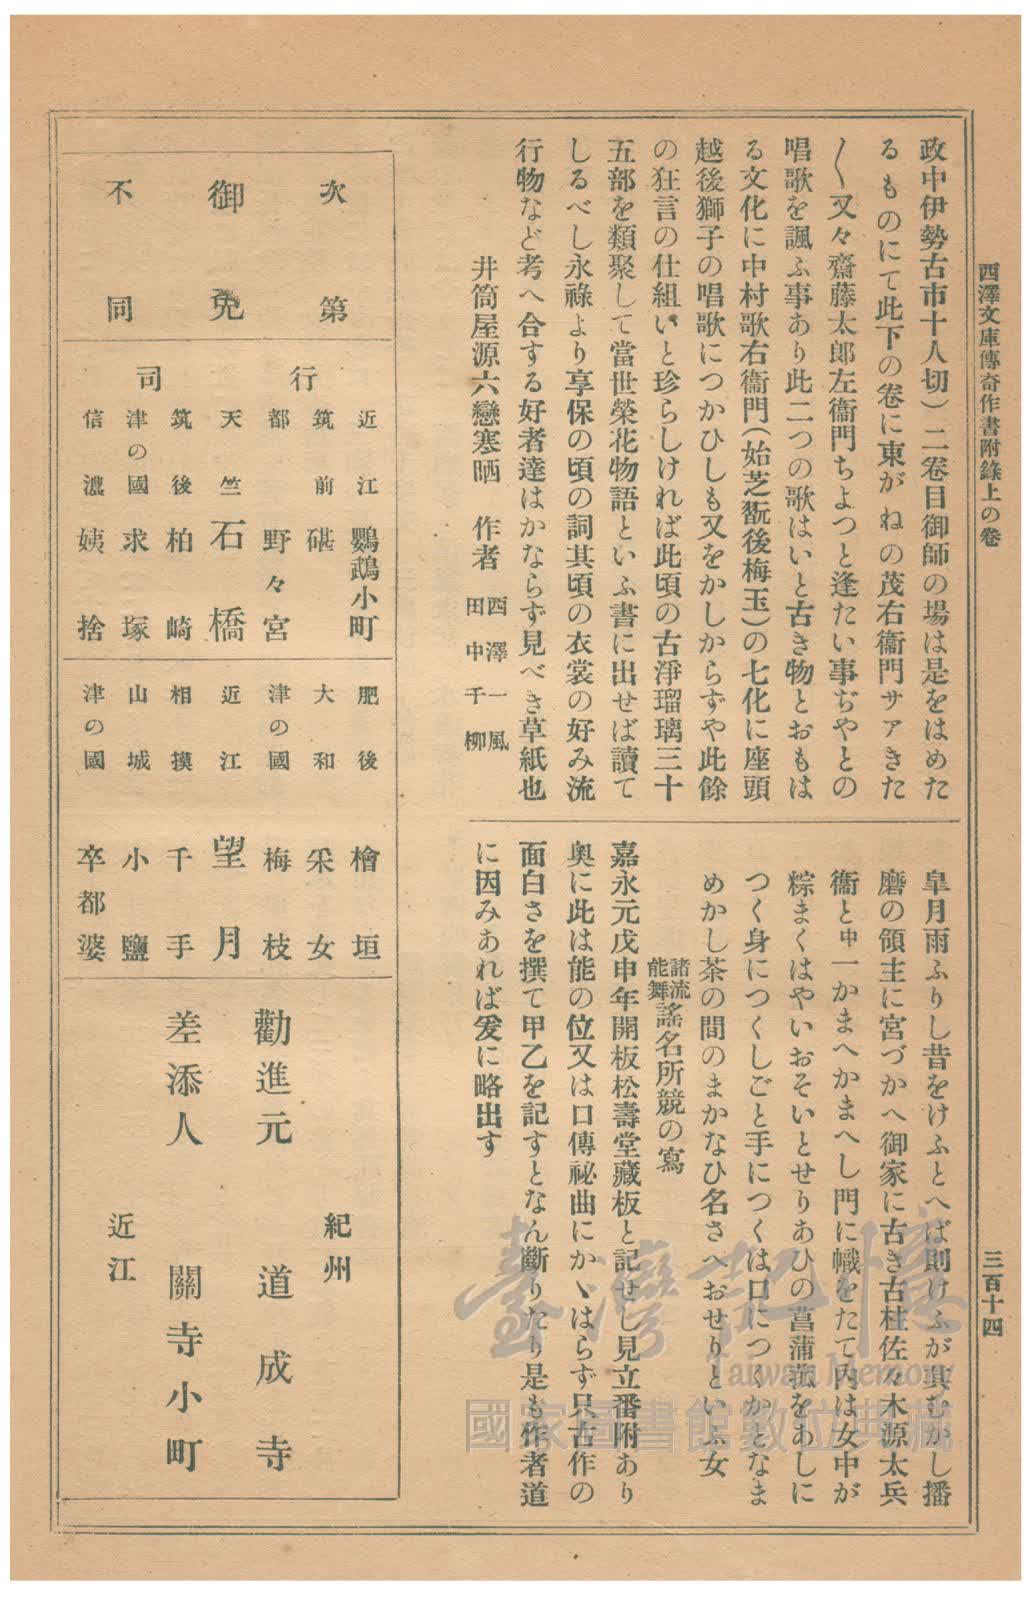 西澤文庫傳奇作書附錄上の卷
三百十四
政中伊勢古市十人切)二卷目御師の場は是をはめた
るものにて此下の卷に東がねの茂右衞門サアきた
〱又々齋藤太郞左衞門ちよつと逢たい事ぢやとの
唱歌を諷ふ事あり此二つの歌はいと古き物とおもは
る文化に中村歌右衞門(始芝翫後梅玉)の七化に座頭
越後獅子の唱歌につかひしも又をかしからずや此餘
の狂言の仕組いと珍らしければ此頃の古淨瑠璃三十
五部を類聚して當世榮花物語といふ書に出せば讀て
しるべし永祿より享保の頃の詞其頃の衣裳の好み流
行物など考へ合する好者達はかならず見べき草紙也
井筒屋源六戀寒晒 作者 西澤一風
田中千柳
皐月雨ふりし昔をけふとへば則けふが其むかし播
磨の領主に宮づかへ御家に古き古柱佐々木源太兵
衞と中一かまへかまへし門に幟をたて內は女中が
粽まくはやいおそいとせりあひの菖蒲をあしに
つく身につくしごと手につくは口につくかとなま
めかし茶の間のまかなひ名さへおせりといふ女
諸流
能舞 謠名所競の寫
嘉永元戊申年開板松壽堂藏板と記せし見立番附あり
奧に此は能の位又は口傳祕曲にかゝはらず只古作の
面白さを撰て甲乙を記すとなん斷りたり是も作者道
に因みあれば爰に略出す
次第
御免
不同
行司
近江 鸚鵡小町
筑前 碪
都 野々宮
天竺 石橋
筑後 柏崎
津の國 求塚
信濃 姨捨
肥後 檜垣
大和 采女
津の國 梅枝
近江 望月
相摸 千手
山城 小鹽
津の國 卒都婆
勸進元 紀州 道成寺
差添人 近江 關寺小町
臺灣記憶
Taiwan Memory
國家圖書館數位典藏